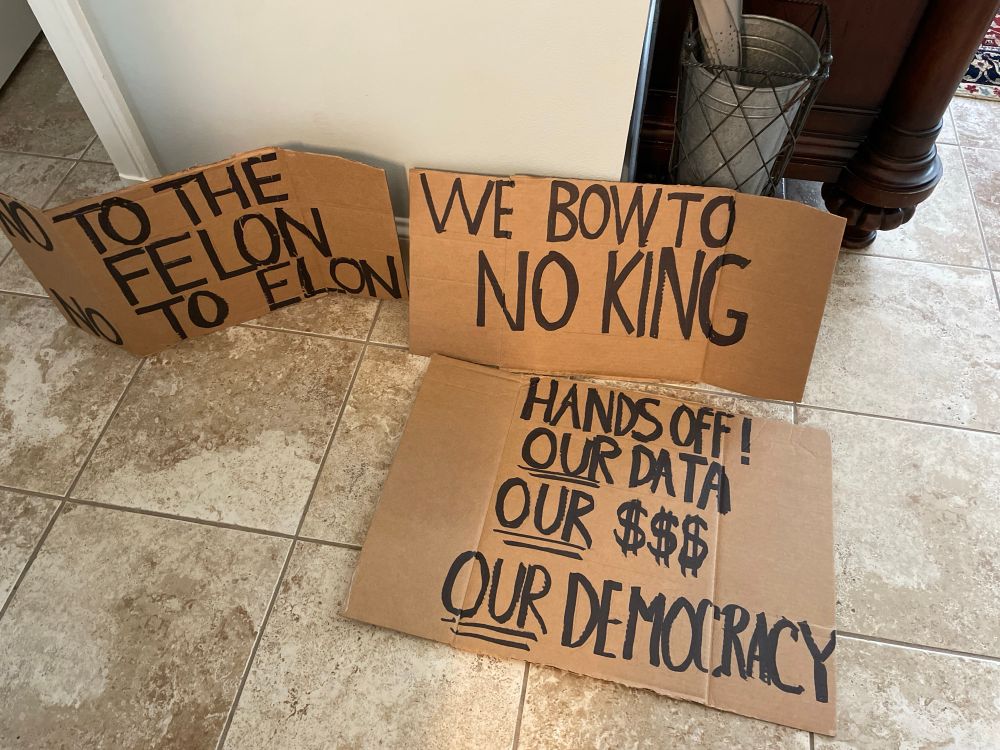 NO TO THE
FELON
NO TO ELON
WE BOW TO
NO KING
HANDS OFF!
OUR DATA
OUR $$$
OUR DEMOCRACY